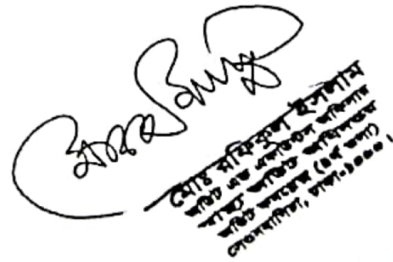 মোঃ মফিজুল ইসলাম
অডিট এন্ড একাউন্টস অফিসার
স্বাস্থ্য অডিট অধিদপ্তর
অডিট কমপ্লেক্স (৪র্থ তলা)
সেগুনবাগিচা, ঢাকা-১০০০।